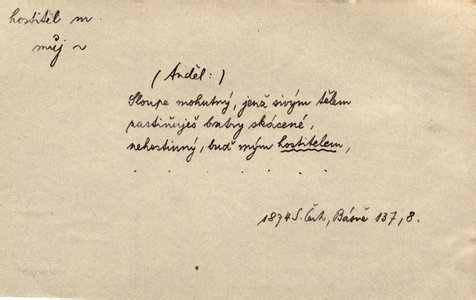 hostitel m.
můj ~
(Anděl:)
Sloupe mohutný, jenž sivým tělem
zastiňuješ bratry skácené,
nehostinný, buď mým hostitelem,
. . . . . . .
1874 S. Čech, Básně 137, 8.